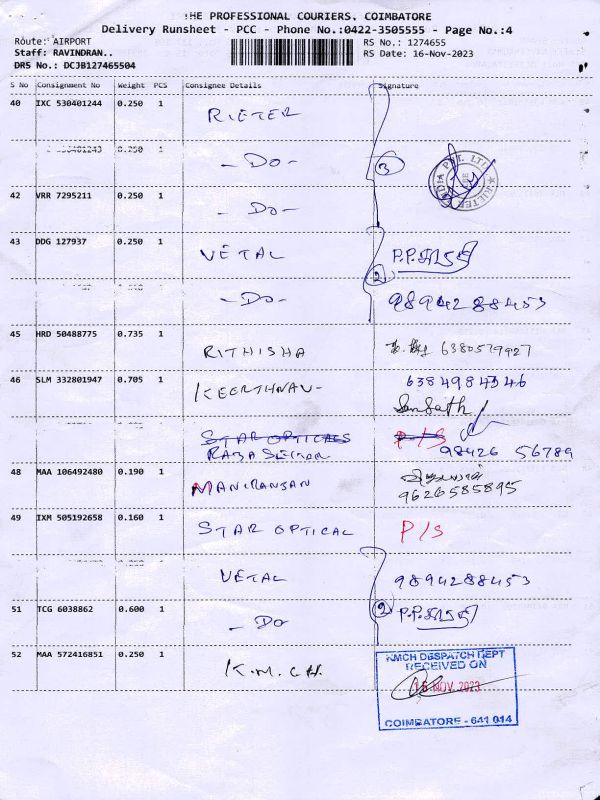 THE PROFESSIONAL COURIERS, COIMBATORE
Delivery Runsheet - PCC - Phone No.:0422-3505555 - Page No.:4
Route: AIRPORT
RS No.: 1274655
Staff: RAVINDRAN..
RS Date: 16-Nov-2023
DRS No.: DCJB127465504
S No Consignment No Weight PCS Consignee Details Signature
40 IXC 530401244 0.250 1 RIETER
0.250 1 - DO - 3
INDIA PVT. LTD. ★ RIETER
42 VRR 7295211 0.250 1 - DO -
43 DDG 127937 0.250 1 VETAL
2
- DO - 9894288453
45 HRD 50488775 0.735 1 RITHISHA 6380579927
46 SLM 332801947 0.705 1 KEERTHNAV- 6384984346
STAR OPTICALS P/S
RAJA SEKAR 98426 56789
48 MAA 106492480 0.190 1 MANIRANJAN
9626585895
49 IXM 505192658 0.160 1 STAR OPTICAL P/S
VETAL 9894288453
51 TCG 6038862 0.600 1 - DO 2
52 MAA 572416851 0.250 1 K.M.C.H.
KMCH DESPATCH DEPT
RECEIVED ON
NOV 2023
COIMBATORE - 641 014